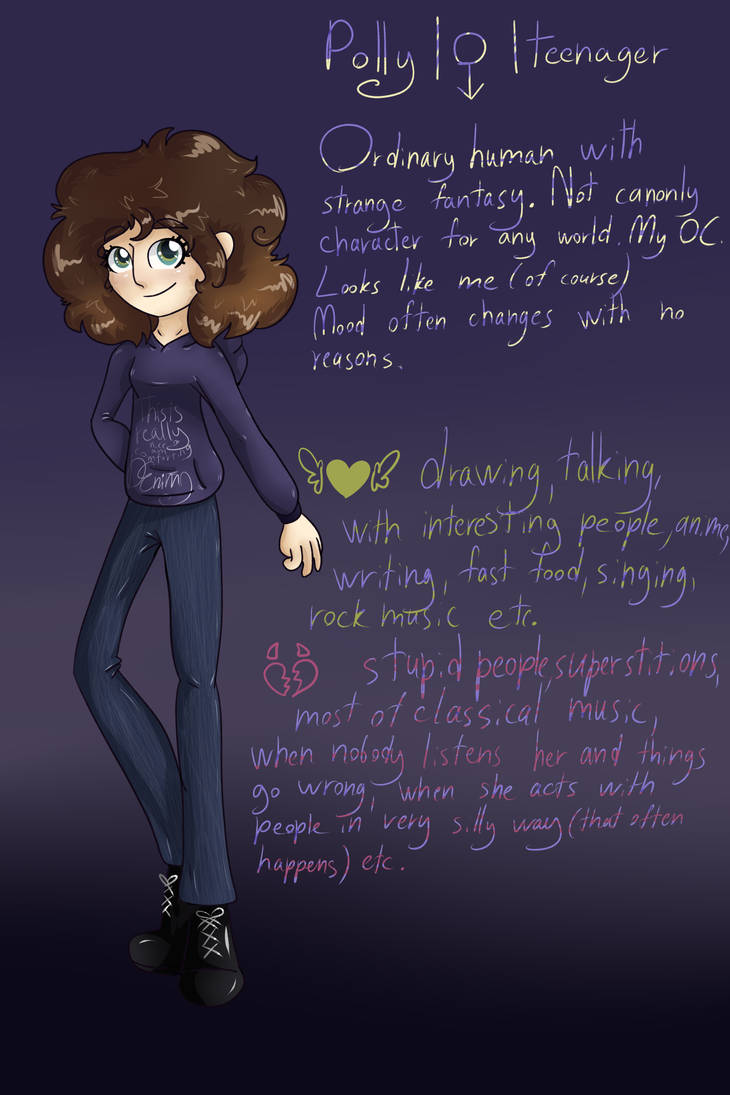 Polly | ♀ | teenager
Ordinary human with
strange fantasy. Not canonly
character for any world. My OC.
Looks like me (of course)
Mood often changes with no
reasons.
This is
really
nice
and
comforting
drawing, talking,
with interesting people, anime,
writing, fast food, singing,
rock music etc.
stupid people, superstitions,
most of classical music,
when nobody listens her and things
go wrong, when she acts with
people in very silly way (that often
happens) etc.